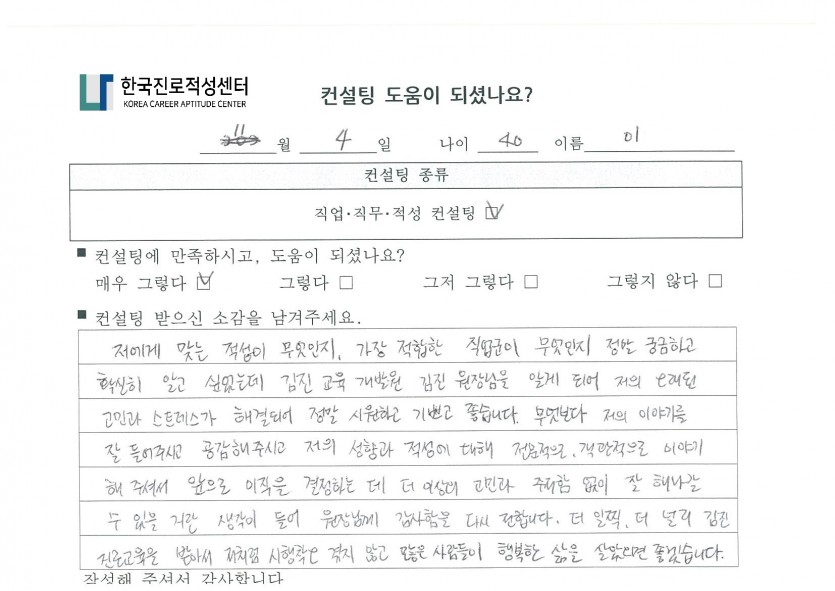 한국진로적성센터
KOREA CAREER APTITUDE CENTER
컨설팅 도움이 되셨나요?
11 월 4 일 나이 40 이름 이
컨설팅 종류
직업·직무·적성 컨설팅 ☑
■ 컨설팅에 만족하시고, 도움이 되셨나요?
매우 그렇다 ☑ 그렇다 □ 그저 그렇다 □ 그렇지 않다 □
■ 컨설팅 받으신 소감을 남겨주세요.
저에게 맞는 적성이 무엇인지, 가장 적합한 직업군이 무엇인지 정말 궁금하고
확실히 알고 싶었는데 김진 교육 개발원 김진 원장님을 알게 되어 저의 오래된
고민과 스트레스가 해결되어 정말 시원하고 기쁘고 좋습니다. 무엇보다 저의 이야기를
잘 들어주시고 공감해주시고 저의 성향과 적성에 대해 전문적으로, 객관적으로 이야기
해 주셔서 앞으로 이직을 결정하는 데 더 이상의 고민과 주저함 없이 잘 해나갈
수 있을 거란 생각이 들어 원장님께 감사함을 다시 전합니다. 더 일찍, 더 널리 김진
진로교육을 받아서 저처럼 시행착오 겪지 않고 많은 사람들이 행복한 삶을 살았으면 좋겠습니다.
작성해 주셔서 감사합니다